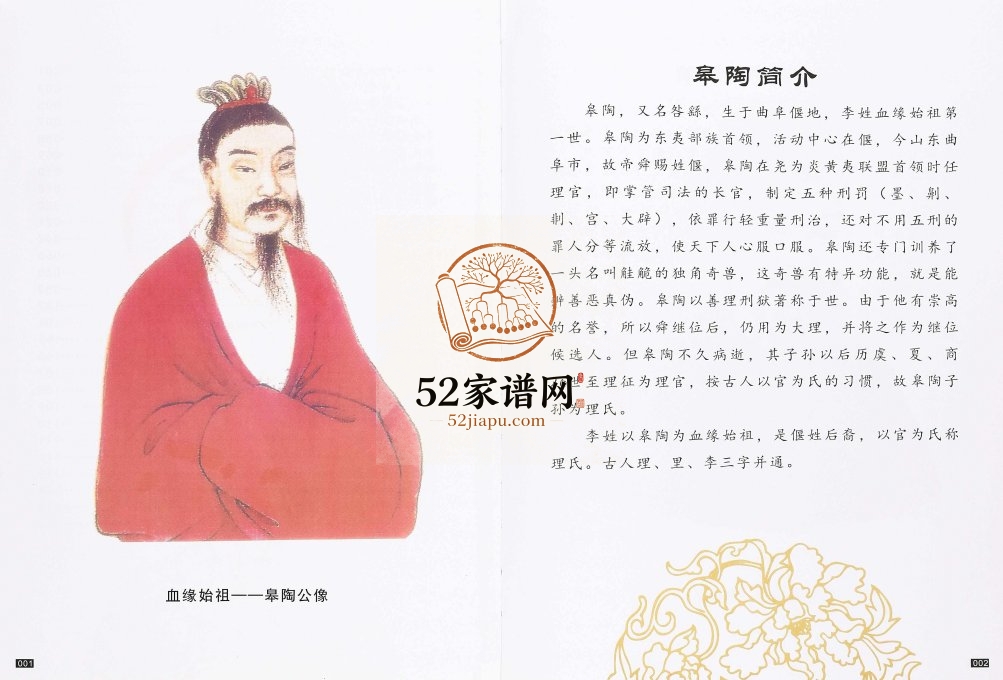 血缘始祖——皋陶公像
001
皋陶简介
皋陶，又名咎繇，生于曲阜偃地，李姓血缘始祖第
一世。皋陶为东夷部族首领，活动中心在偃，今山东曲
阜市，故帝舜赐姓偃，皋陶在尧为炎黄夷联盟首领时任
理官，即掌管司法的长官，制定五种刑罚（墨、劓、
剕、宫、大辟），依罪行轻重量刑治，还对不用五刑的
罪人分等流放，使天下人心服口服。皋陶还专门训养了
一头名叫觟䚦的独角奇兽，这奇兽有特异功能，就是能
辨善恶真伪。皋陶以善理刑狱著称于世。由于他有崇高
的名誉，所以舜继位后，仍用为大理，并将之作为继位
候选人。但皋陶不久病逝，其子孙以后历虞、夏、商
世至理征为理官，按古人以官为氏的习惯，故皋陶子
孙为理氏。
李姓以皋陶为血缘始祖，是偃姓后裔，以官为氏称
理氏。古人理、里、李三字并通。
002
52家谱网
52jiapu.com